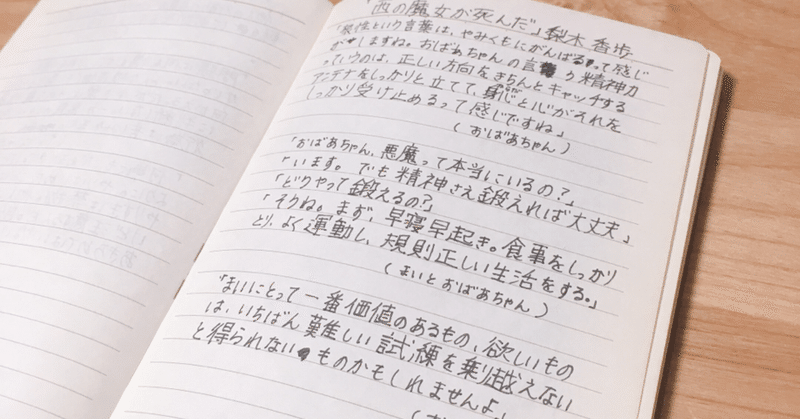 「西の魔女が死んだ」梨木香歩
「根性という言葉は、やみくもにがんばるって感じ
がしますね。おばあちゃんの言う精神力
っていうのは、正しい方向をきちんとキャッチする
アンテナをしっかりと立てて、身体と心がそれを
しっかり受け止めるって感じですね」
(おばあちゃん)
「おばあちゃん、悪魔って本当にいるの?」
「います。でも精神さえ鍛えれば大丈夫」
「どうやって鍛えるの?」
「そうね。まず、早寝早起き。食事をしっかり
とり、よく運動し、規則正しい生活をする。」
(まいとおばあちゃん)
「まいにとって一番価値のあるもの、欲しいもの
は、いちばん難しい試練を乗り越えない
と得られないものかもしれませんよ」